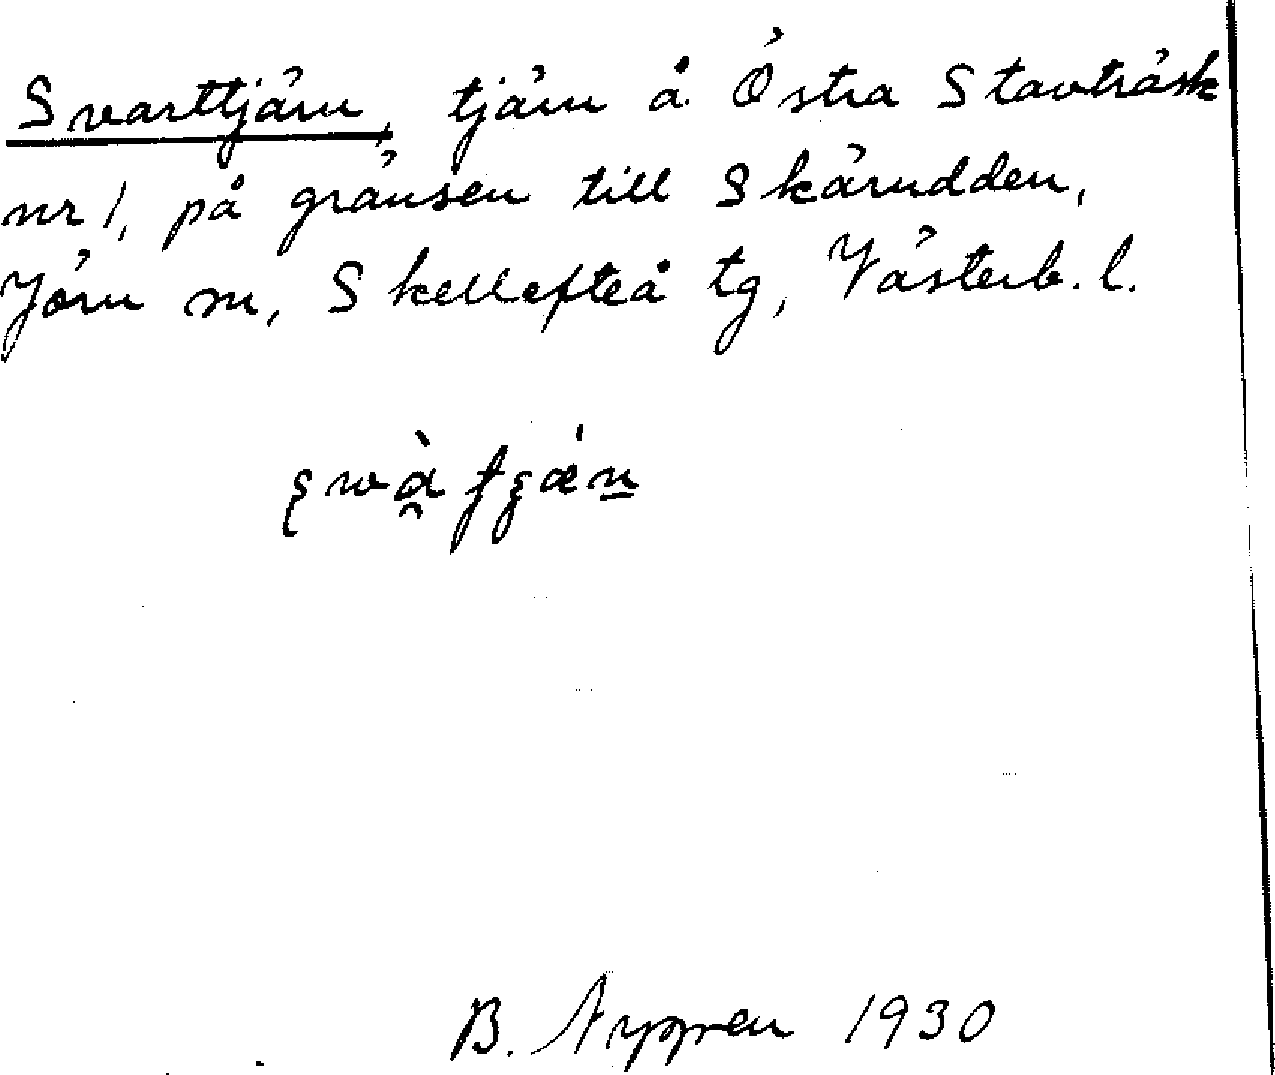 Svarttjärn, tjärn å Östra Stavträsk
nr 1, på gränsen till Skärudden,
Jörn sn, Skellefteå tg, Västerb. l.
B. Nygren 1930